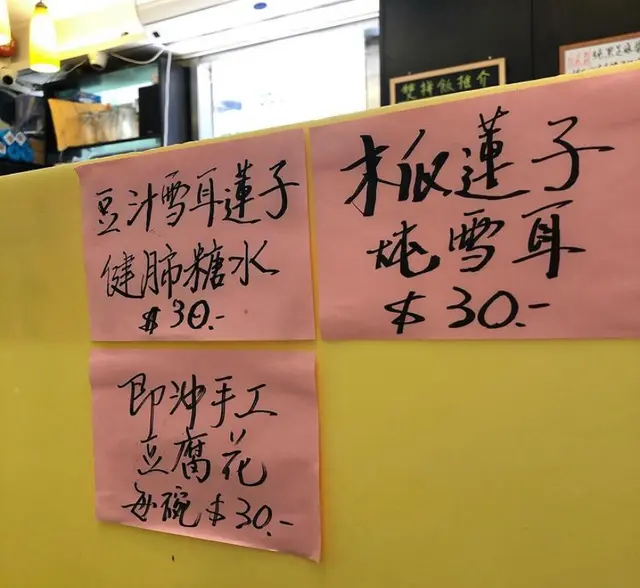 雙拼飯推介
豆汁雪耳蓮子
健肺糖水
$30.-
木瓜蓮子
炖雪耳
$30.-
即沖手工
豆腐花
每碗$30.-